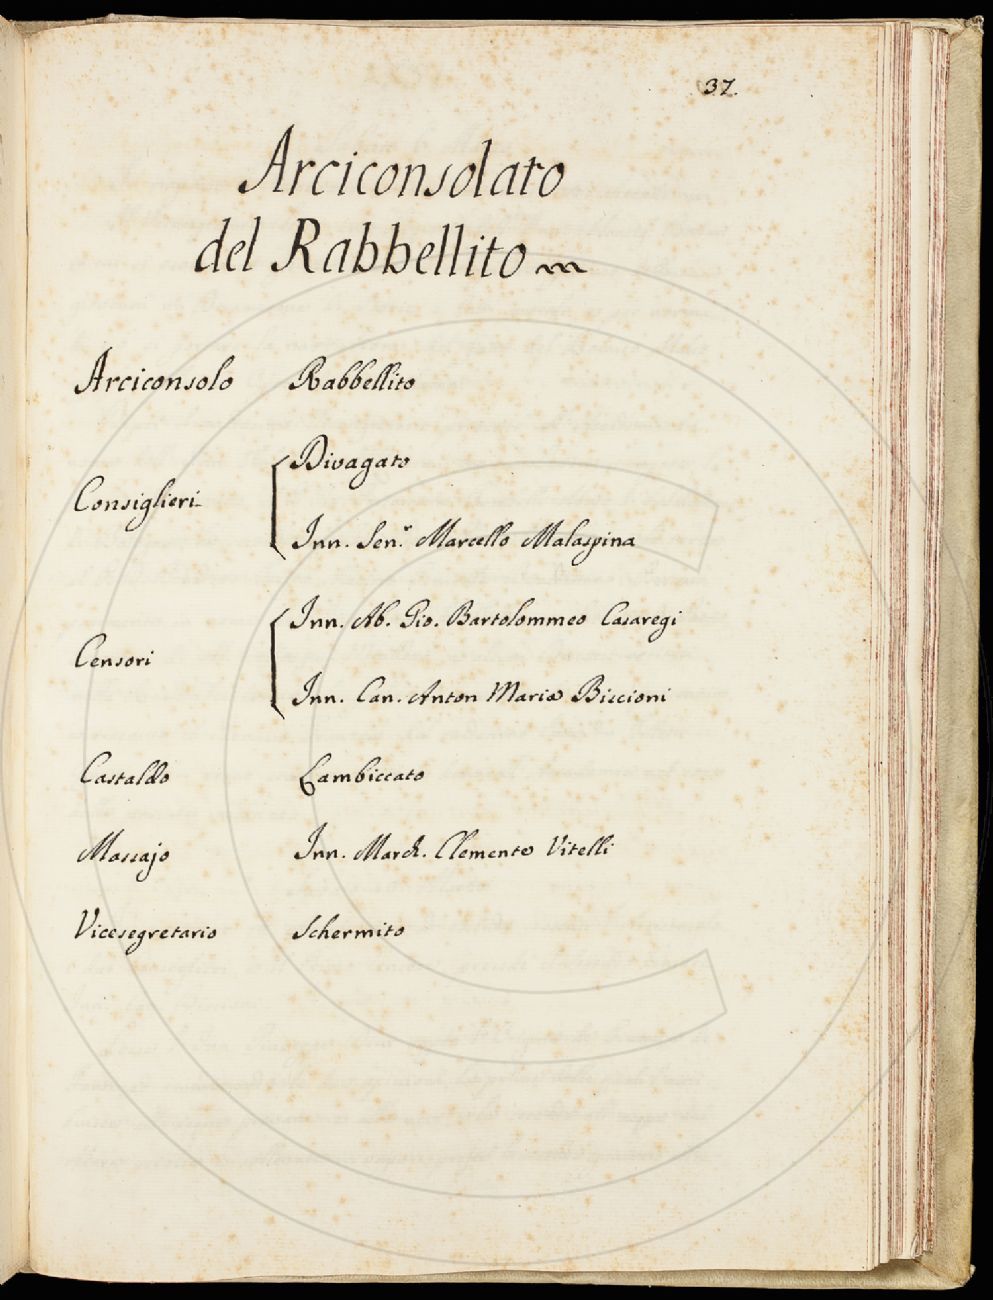 37.
Arciconsolato
del Rabbellito
Arciconsolo Rabbellito
Consiglieri Divagato
Inn. Sen.r Marcello Malaspina
Censori Inn. Ab. Gio. Bartolommeo Casaregi
Inn. Can. Anton Maria Biscioni
Castaldo Lambiccato
Massajo Inn. March. Clemente Vitelli
Vicesegretario Schermito